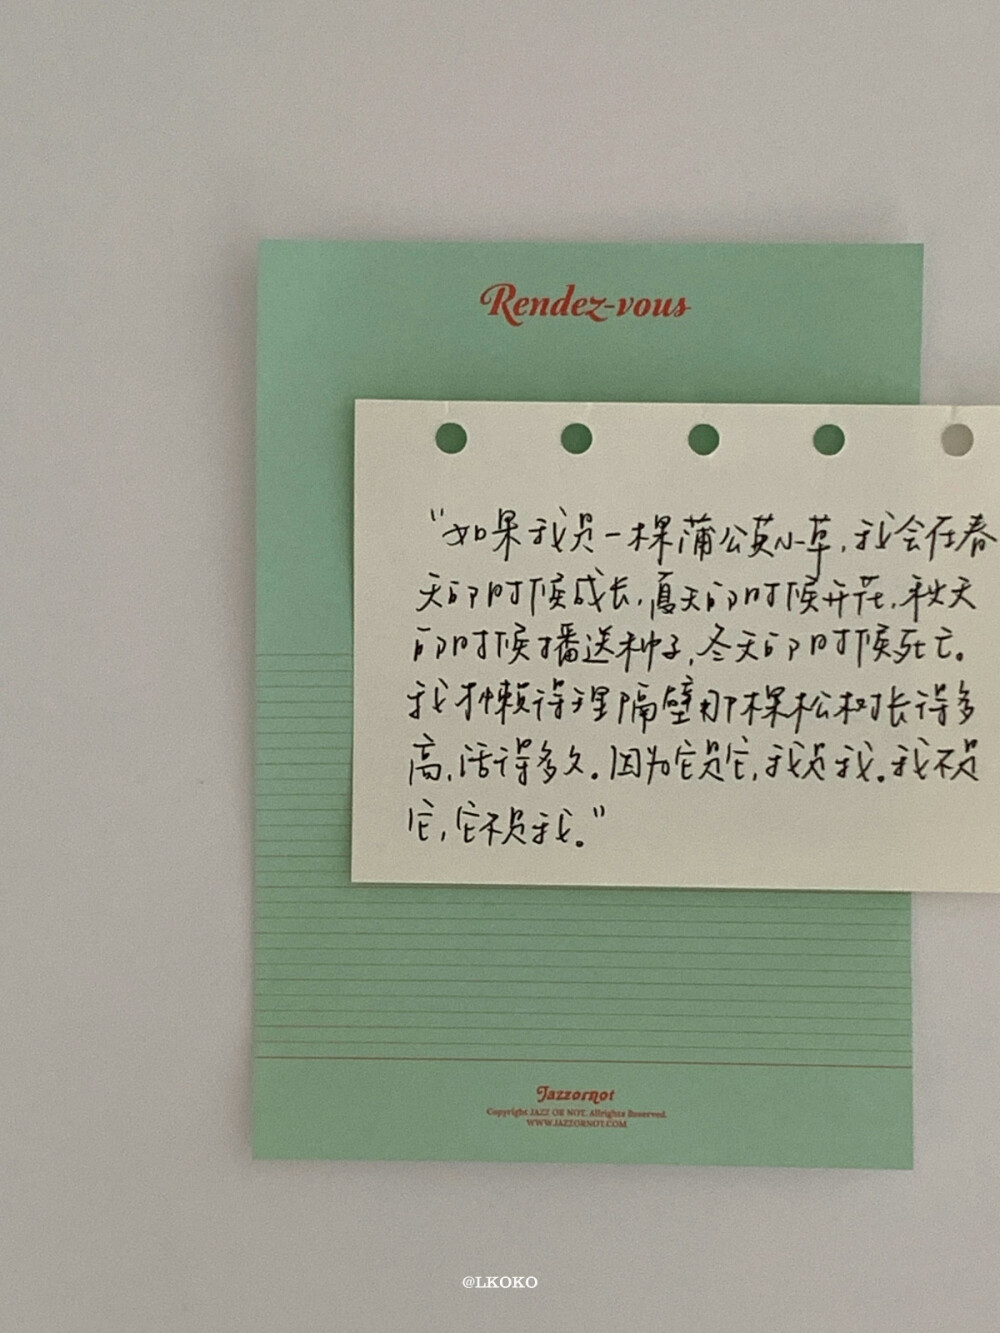 Rendez-vous
“如果我是一棵蒲公英小草，我会在春
天的时候成长，夏天的时候开花，秋天
的时候播送种子，冬天的时候死亡。
我才懒得理隔壁那棵松树长得多
高，活得多久。因为它是它，我是我。我不是
它，它不是我。”
Jazzornot
Copyright JAZZ OR NOT. Allrights Reserved.
WWW.JAZZORNOT.COM
@LKOKO